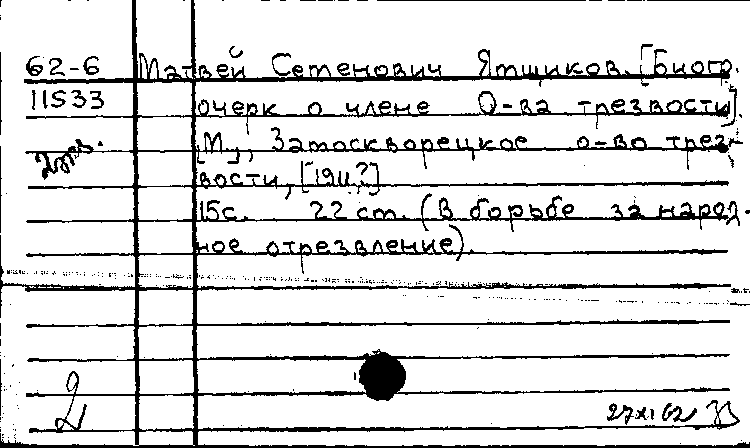 62-6 Матвей Сетенович Ятщиков. [Биогр.
11533 очерк о члене О-ва трезвости].
2 экз. [М.], Затоскворецкое о-во трез-
вости, [191 ?]
15с. 22 ст. (В борьбе за народ-
ное отрезвление).
2
27 XI 62